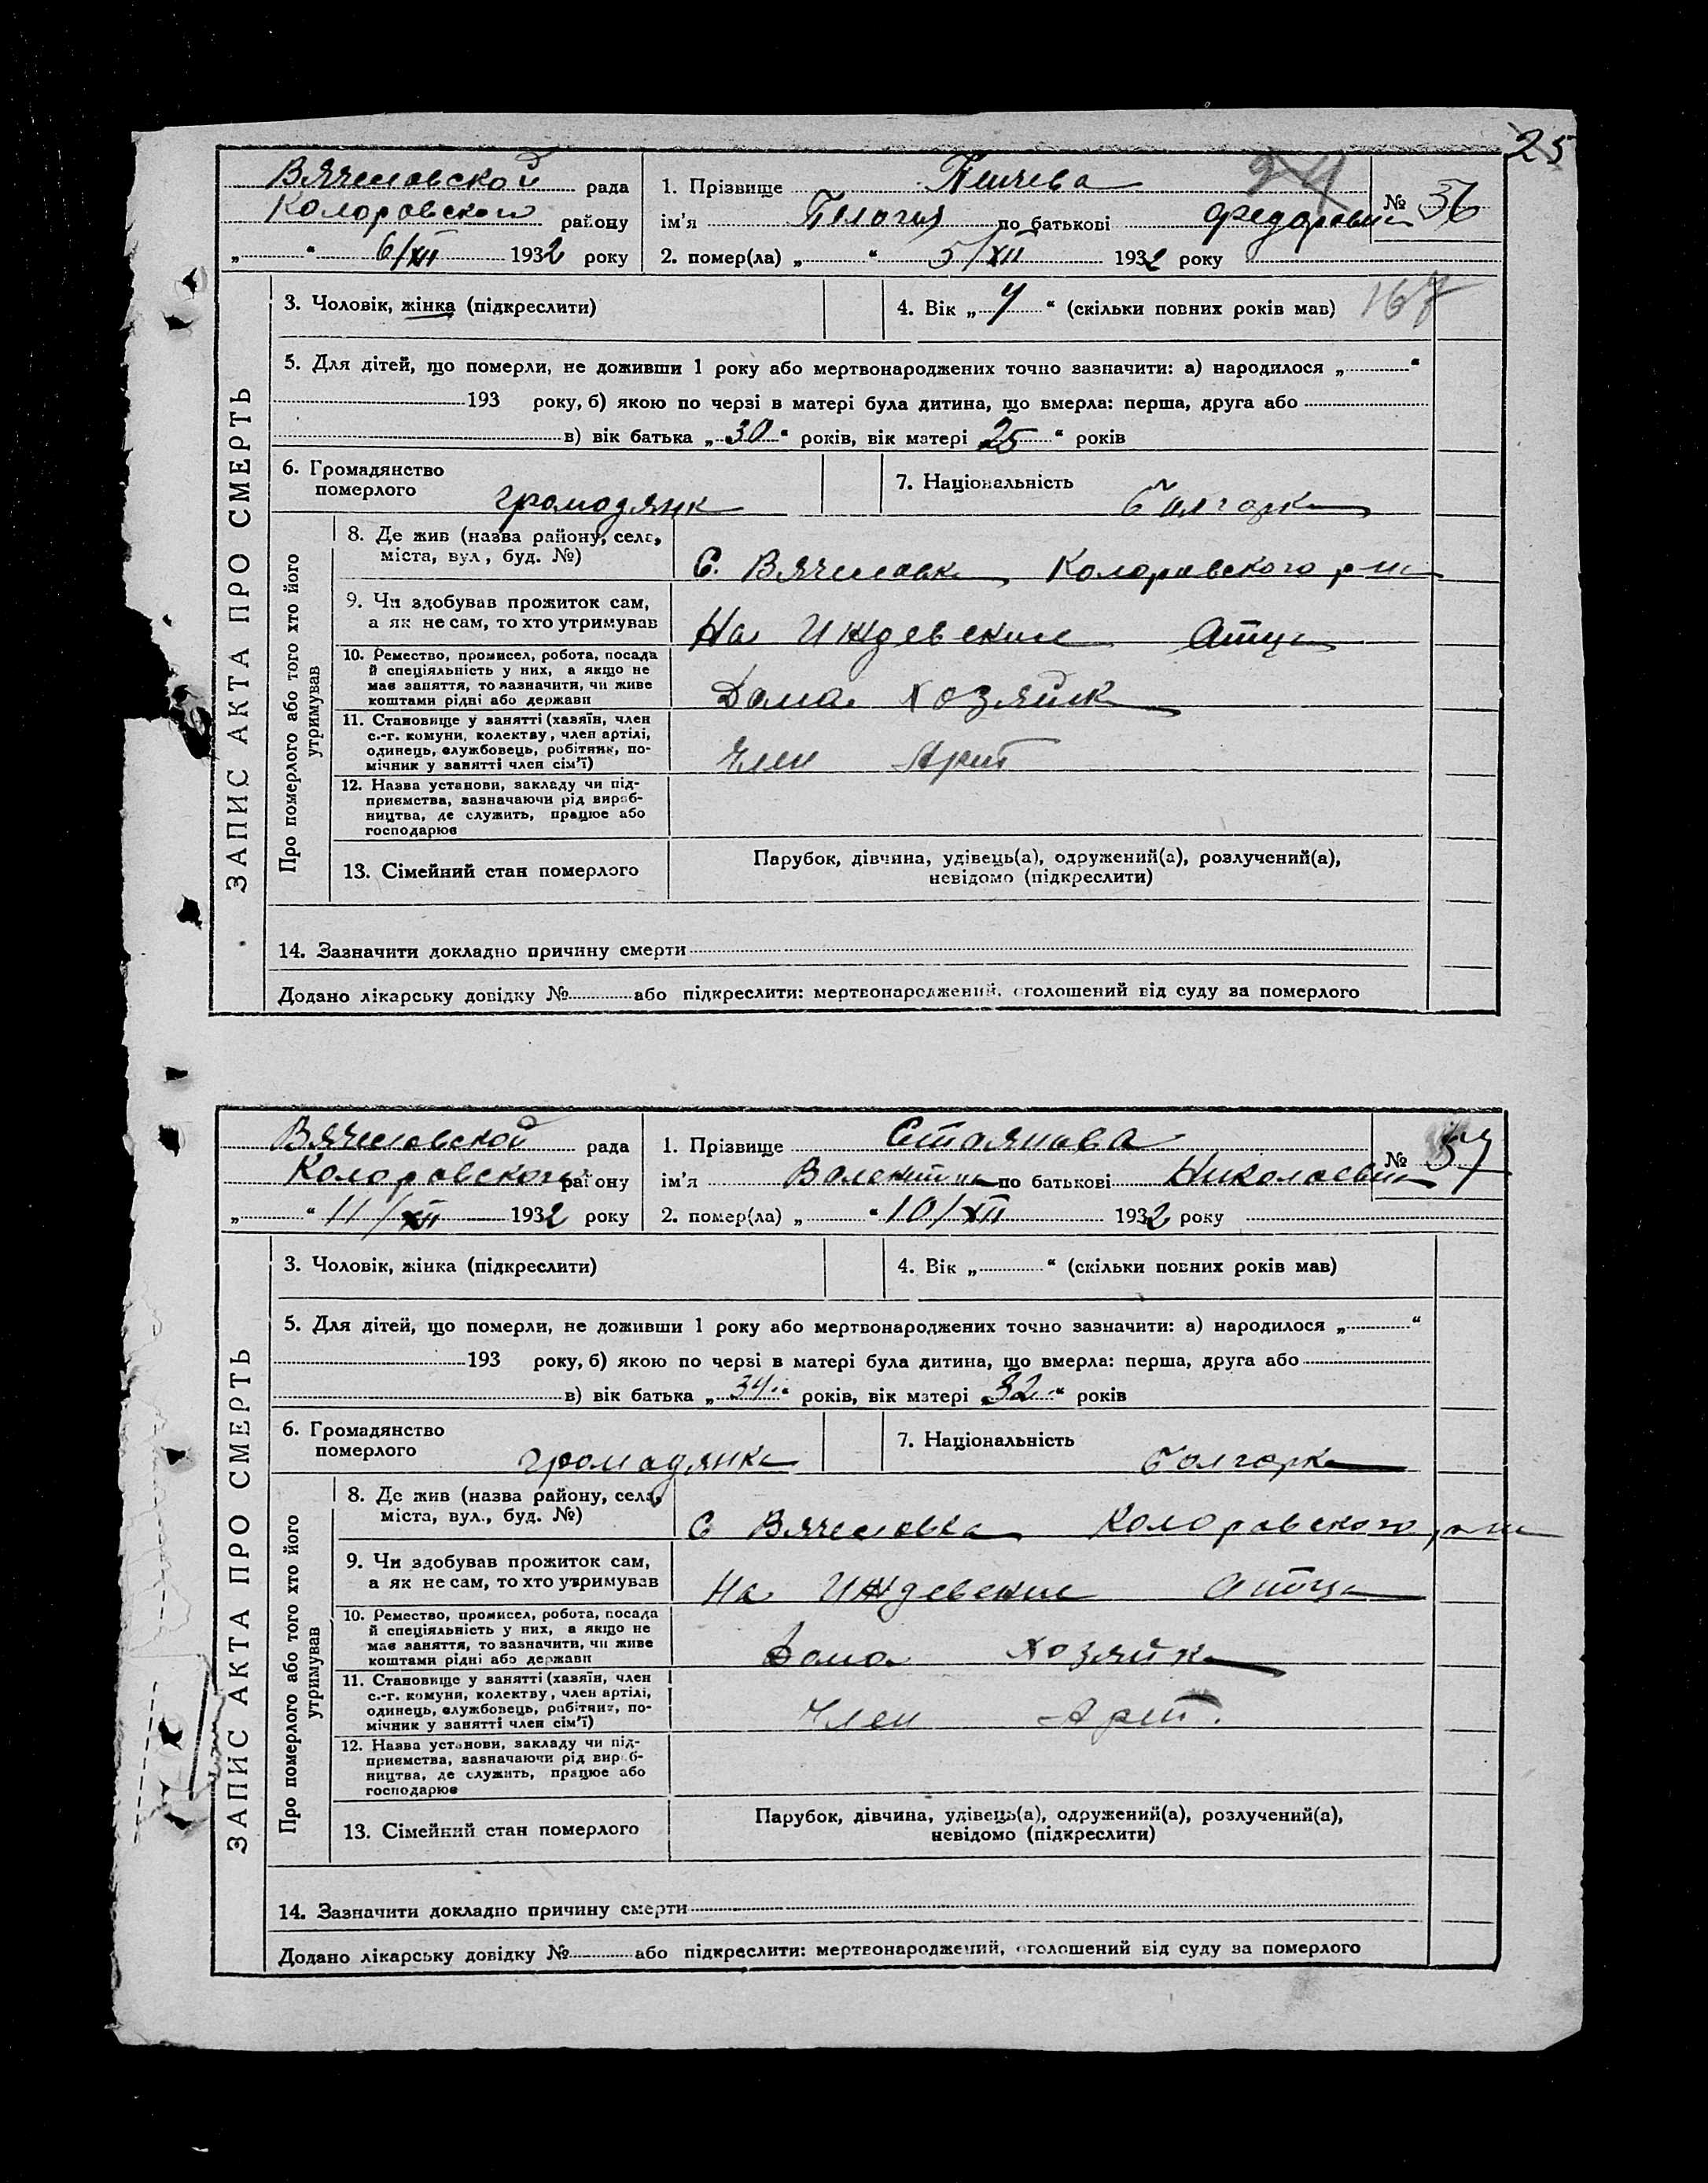 25
Вячеславской рада
Коларовского району
„ “ 6/XII 1932 року
1. Прізвище Пейчева 24
ім'я Пелагия по батькові Федоровн
№ 36
2. помер(ла) „ “ 5/XII 1932 року
ЗАПИС АКТА ПРО СМЕРТЬ
3. Чоловік, жінка (підкреслити)
4. Вік „ 4 “ (скільки повних років мав) 167
5. Для дітей, що померли, не доживши 1 року або мертвонароджених точно зазначити: а) народилося „ “
193 року, б) якою по черзі в матері була дитина, що вмерла: перша, друга або
в) вік батька „ 30 “ років, вік матері 25 “ років
6. Громадянство
померлого громодянк
7. Національність болгарка
Про померлого або того хто його
утримував
8. Де жив (назва району, села,
міста, вул, буд. №)
С. Вячеславка Коларовского р-на
9. Чи здобував прожиток сам,
а як не сам, то хто утримував
На Иждевение Атца
10. Ремество, промисел, робота, посада
й спеціяльність у них, а якщо не
має заняття, то зазначити, чи живе
коштами рідні або держави
Дома хозяйк
11. Становище у занятті (хазяїн, член
с.-г. комуни, колектву, член артілі,
одинець, службовець, робітник, по-
мічник у занятті член сім'ї)
Член Арт
12. Назва установи, закладу чи під-
приємства, зазначаючи рід вироб-
ництва, де служить, працює або
господарює
13. Сімейний стан померлого
Парубок, дівчина, удівець(а), одружений(а), розлучений(а),
невідомо (підкреслити)
14. Зазначити докладно причину смерти
Додано лікарську довідку № або підкреслити: мертвонароджений, оголошений від суду за померлого
Вячеславской рада
Коларовского району
„ “ 11/XII 1932 року
1. Прізвище Стоянова
ім'я Валентина по батькові Николаевн
№ 37
2. помер(ла) „ “ 10/XII 1932 року
ЗАПИС АКТА ПРО СМЕРТЬ
3. Чоловік, жінка (підкреслити)
4. Вік „ “ (скільки повних років мав)
5. Для дітей, що померли, не доживши 1 року або мертвонароджених точно зазначити: а) народилося „ “
193 року, б) якою по черзі в матері була дитина, що вмерла: перша, друга або
в) вік батька „ 34 “ років, вік матері „ 32 “ років
6. Громадянство
померлого громадянка
7. Національність болгарка
Про померлого або того хто його
утримував
8. Де жив (назва району, села,
міста, вул., буд. №)
С Вячеславка Коларовского р-на
9. Чи здобував прожиток сам,
а як не сам, то хто утримував
На Иждевение атца
10. Ремество, промисел, робота, посада
й спеціяльність у них, а якщо не
має заняття, то зазначити, чи живе
коштами рідні або держави
Дома хозяйка
11. Становище у занятті (хазяїн, член
с.-г. комуни, колектву, член артілі,
одинець, службовець, робітник, по-
мічник у занятті член сім'ї)
Член Арт.
12. Назва установи, закладу чи під-
приємства, зазначаючи рід вироб-
ництва, де служить, працює або
господарює
13. Сімейний стан померлого
Парубок, дівчина, удівець(а), одружений(а), розлучений(а),
невідомо (підкреслити)
14. Зазначити докладно причину смерти
Додано лікарську довідку № або підкреслити: мертвонароджений, оголошений від суду за померлого